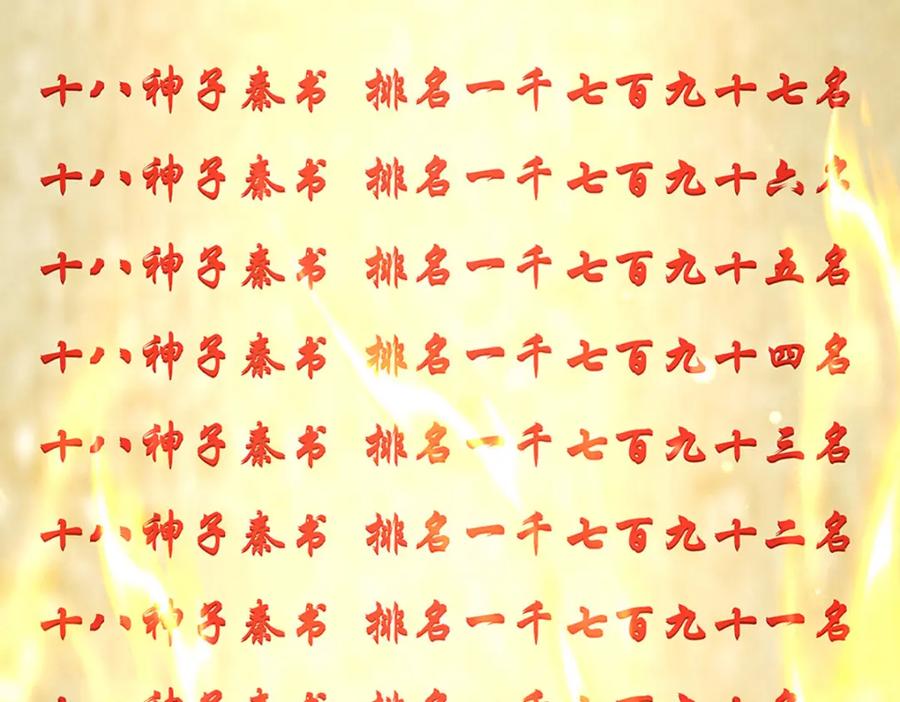 十八神子秦书 排名一千七百九十七名
十八神子秦书 排名一千七百九十六名
十八神子秦书 排名一千七百九十五名
十八神子秦书 排名一千七百九十四名
十八神子秦书 排名一千七百九十三名
十八神子秦书 排名一千七百九十二名
十八神子秦书 排名一千七百九十一名
十八神子秦书 排名一千七百九十名